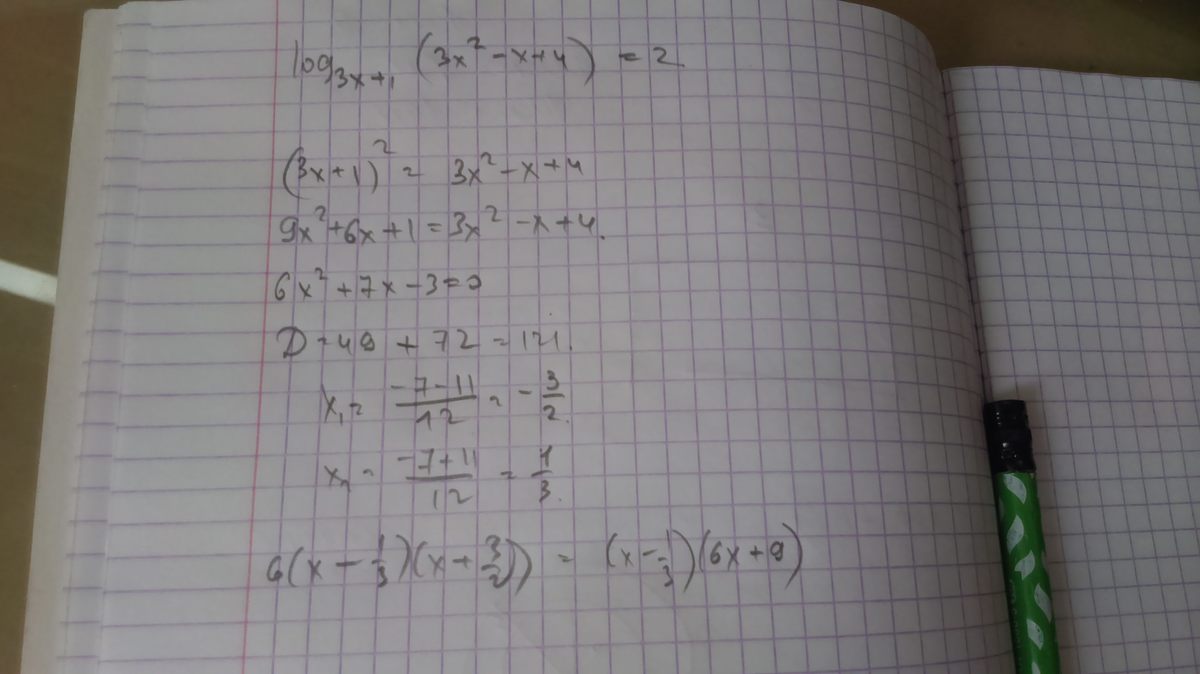 log₃ₓ₊₁ (3x² - x + 4) = 2
(3x + 1)² = 3x² - x + 4
9x² + 6x + 1 = 3x² - x + 4.
6x² + 7x - 3 = 0
D = 49 + 72 = 121.
x₁ = (-7 - 11)/12 = -3/2.
x₂ = (-7 + 11)/12 = 1/3.
6(x - 1/3)(x + 3/2)) = (x - 1/3)(6x + 9)